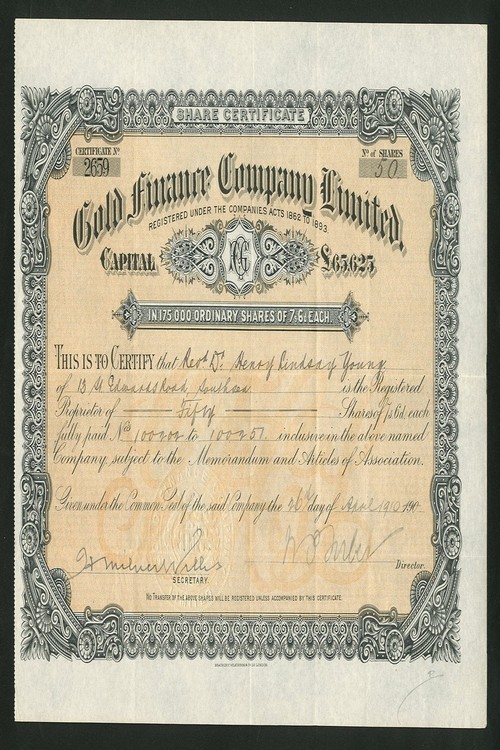 SHARE CERTIFICATE
CERTIFICATE No
2659
No of SHARES
50
Gold Finance Company Limited.
REGISTERED UNDER THE COMPANIES ACTS 1862 TO 1893
CAPITAL £65,625
IN 175,000 ORDINARY SHARES OF 7/6 EACH.
THIS IS TO CERTIFY that Revd Dr. Henry Lindsay Young
of 13 St Edwards Road, Southsea is the Registered
Proprietor of Fifty Shares of 7s/6d. each
fully paid Nos 100202 to 100251 inclusive in the above named
Company, subject to the Memorandum and Articles of Association.
Given under the Common Seal of the said Company the 26th day of April 1910 190
SECRETARY
Director.
NO TRANSFER OF THE ABOVE SHARES WILL BE REGISTERED UNLESS ACCOMPANIED BY THIS CERTIFICATE.